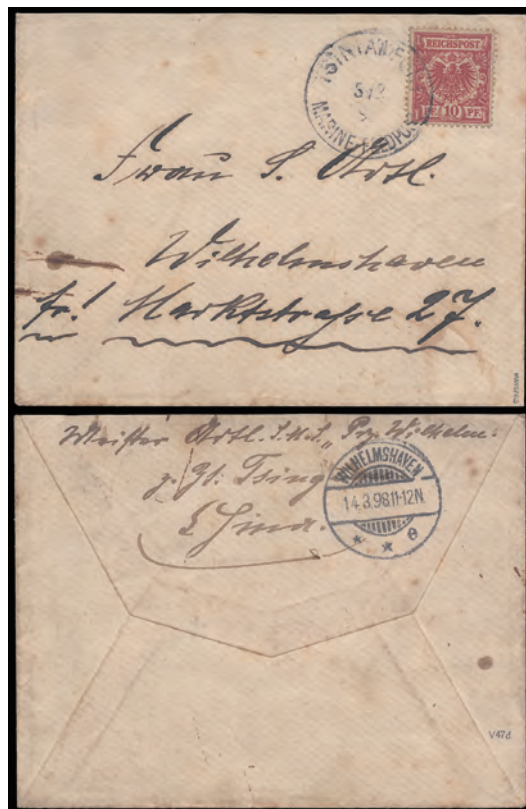 TSINTANFORT
5/2
MARINE-FELDPOST
REICHSPOST
10 PF
Frau S. Ortl.
Wilhelmshaven
fr! Marktstraße 27.
Meister Ortl. S.M.S. „Prz. Wilhelm"
z. Zt. Tsing
China.
WILHELMSHAVEN
14.3.98.11-12N.
V47d